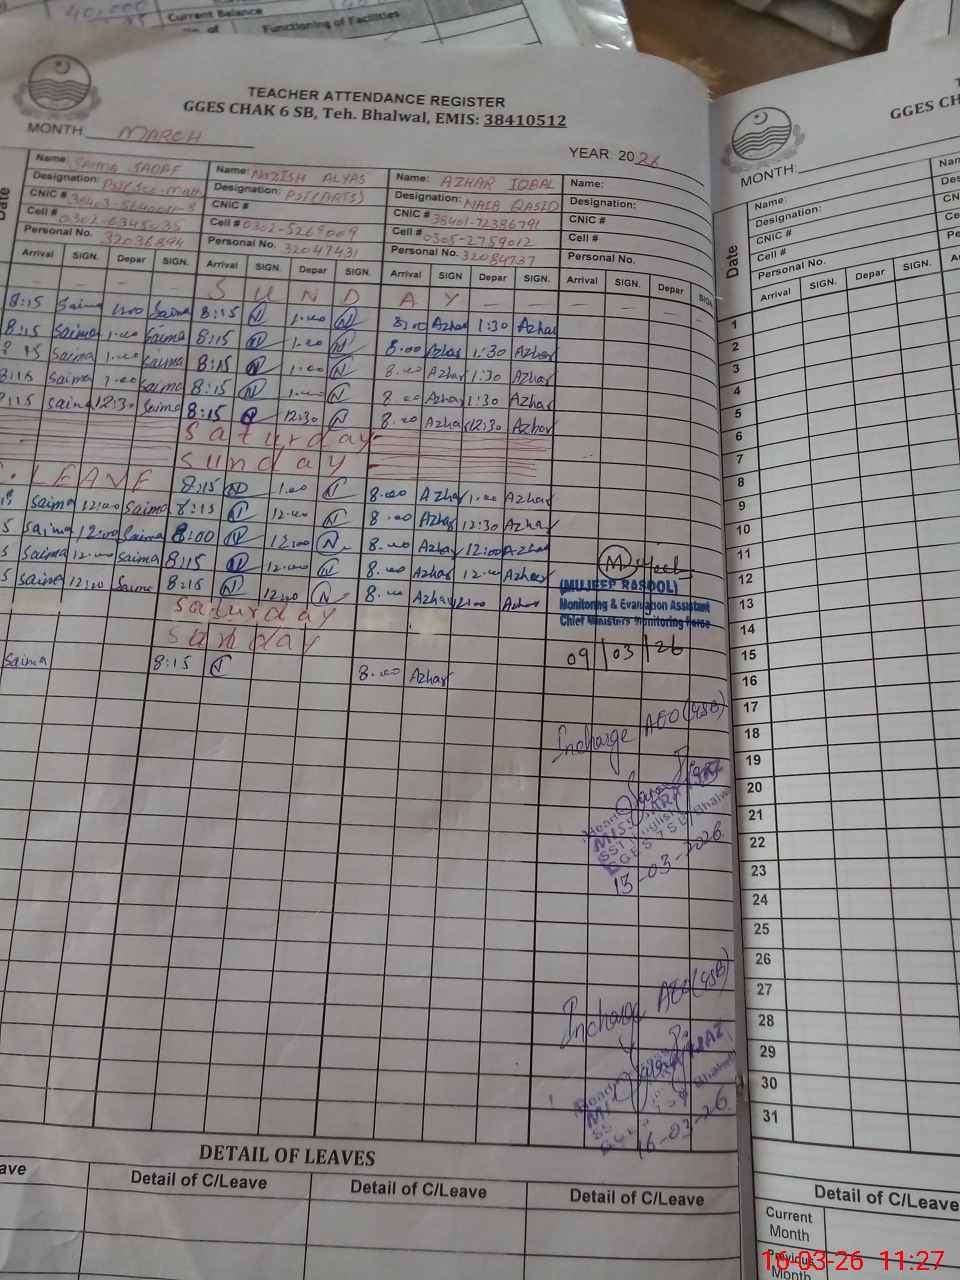 40,000
Current Balance
Functioning of Facilities
TEACHER ATTENDANCE REGISTER
GGES CHAK 6 SB, Teh. Bhalwal, EMIS: 38410512
MONTH: MARCH
YEAR: 2026
Date
Name: SAIMA SADAF
Designation: PST(Sce-Math)
CNIC #
Cell # 0302-6345035
Personal No. 32036894
Name: NOZISH ALYAS
Designation: PST(ARTS)
CNIC #
Cell # 0302-5269009
Personal No. 32047431
Name: AZHAR IQBAL
Designation: NAIB QASID
CNIC # 38401-72386791
Cell # 0305-2759012
Personal No. 32084737
Name:
Designation:
CNIC #
Cell #
Personal No.
Arrival SIGN. Depar SIGN. Arrival SIGN. Depar SIGN. Arrival SIGN Depar SIGN. Arrival SIGN. Depar SIGN
S U N D A Y
8:15 Saima 1:00 Saima 8:15 N 1.00 N 8:00 Azhar 1:30 Azhar
8:15 Saima 1.00 Saima 8:15 N 1.00 N 8.00 Azhar 1:30 Azhar
8 15 Saima 1.00 Saima 8:15 N 1.00 N 8.00 Azhar 1:30 Azhar
8:15 Saima 1.00 Saima 8:15 N 1.00 N 8.00 Azhar 1:30 Azhar
Saima 12:30 Saima 8:15 N 12:30 N 8.00 Azhar 12:30 Azhar
Saturday
Sunday
LEAVE 8:15 N 1.00 N 8.00 Azhar 1.00 Azhar
Saima 12:00 Saima 8:15 N 12.00 N 8.00 Azhar 12:30 Azhar
5 Saima 12:00 Saima 8:00 N 12:00 N 8.00 Azhar 12:00 Azhar
5 Saima 12.00 Saima 8:15 N 12.00 N 8.00 Azhar 12.00 Azhar
5 Saima 12:00 Saima 8:15 N 12:00 N 8.00 Azhar 12:00 Azhar
Saturday
Sunday
Saima 8:15 N 8.00 Azhar
(MUJEEP RASOOL)
Monitoring & Evaluation Assistant
Chief Ministers Monitoring Force
09/03/26
Incharge AEO(4SB)
13-03-2026
Incharge AEO(4SB)
16-03-26
DETAIL OF LEAVES
Detail of C/Leave Detail of C/Leave Detail of C/Leave
GGES CH
MONTH:
Date
Name:
Designation:
CNIC #
Cell #
Personal No.
Arrival SIGN. Depar SIGN.
1
2
3
4
5
6
7
8
9
10
11
12
13
14
15
16
17
18
19
20
21
22
23
24
25
26
27
28
29
30
31
Detail of C/Leave
Current
Month
Previous
Month
16-03-26 11:27